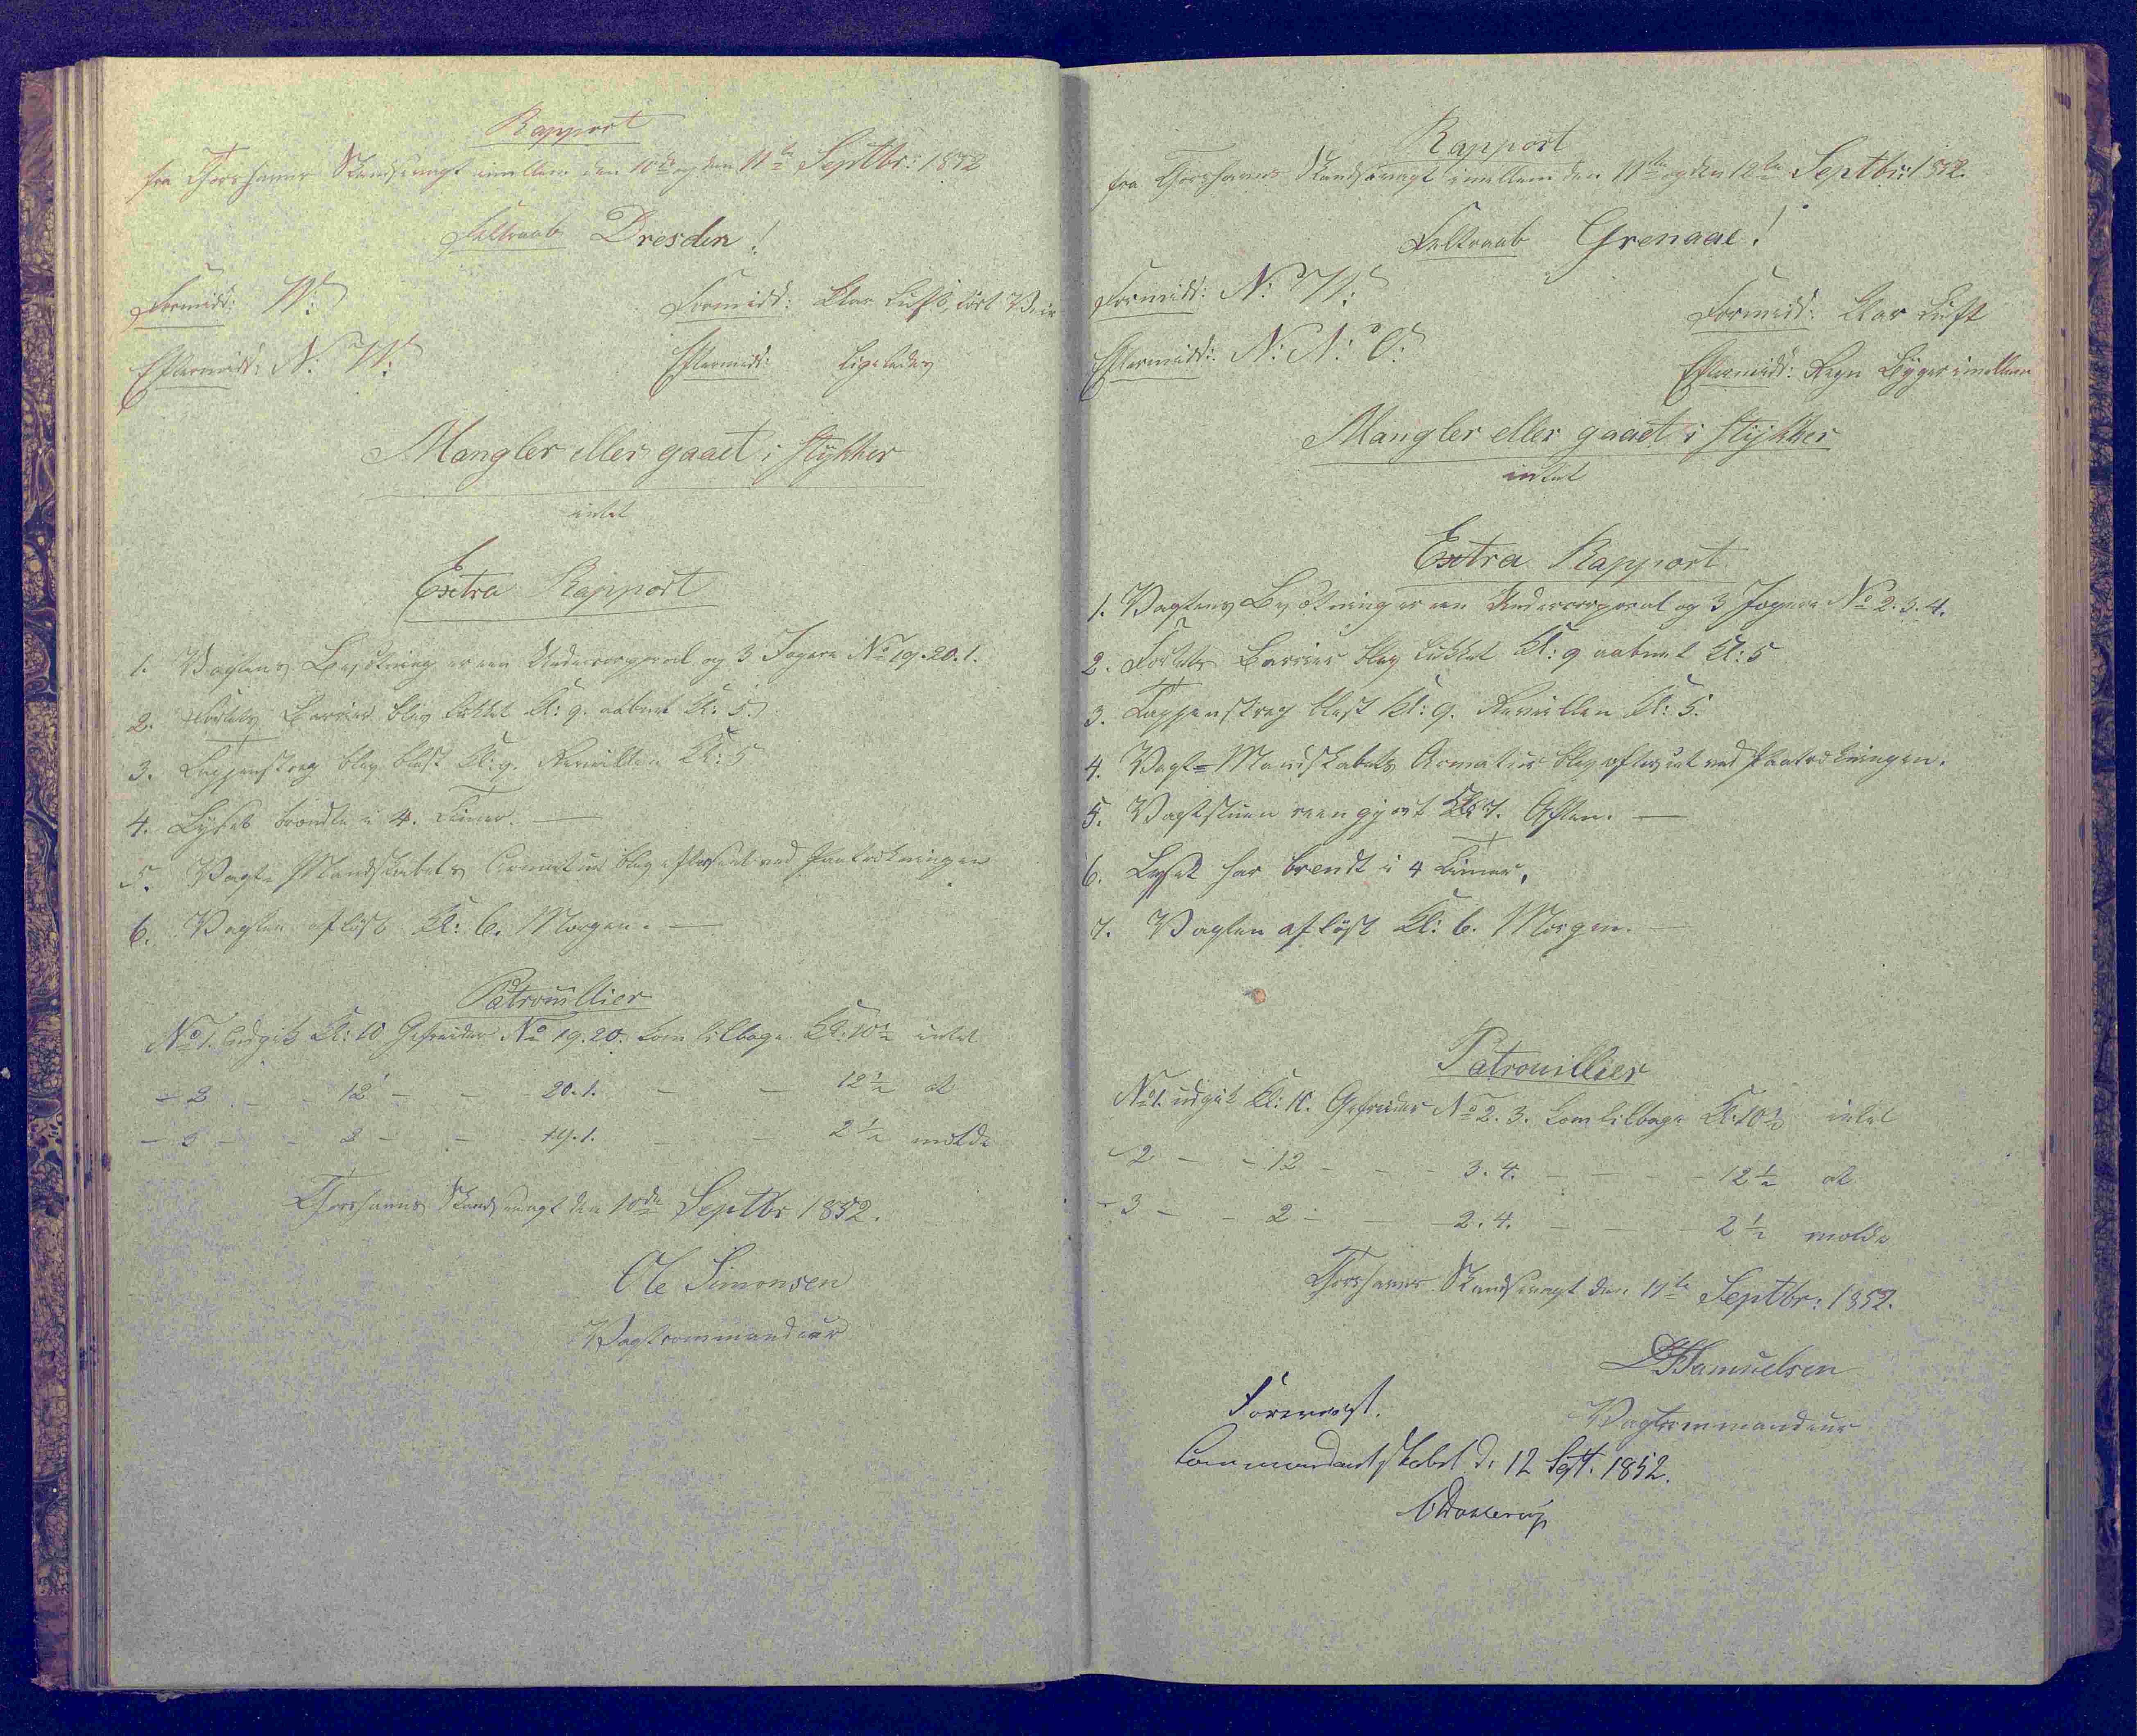 Rapport
fra Thorshavns Skandsevagt imellem den 10de og den 11te Septbr: 1852
Feltraab Dresden!
Formidd: W:
Formidd: Klar Luft, tört Veir
Eftermidd: N: W:
Eftermidd: Ligeledes
Mangler eller gaaet i stykker
intet
Extra Rapport
1. Vagtens Besætning er een Undercorporal og 3 Jægere No 19. 20. 1.
2. Fortets Barrier blev lukket Kl: 9. aabnet Kl: 5.
3. Tappenstreg blev blæst Kl: 9. Reveillen Kl: 5
4. Lyset brændte i 4. Timer. —
5. Vagt-Mandskabets Armatur blev efterseet ved Paatrækningen
6. Vagten aflöst Kl: 6. Morgen. —
Patrouillier
No 1. udgik Kl: 10 Gefreider No 19. 20. kom tilbage Kl: 10½ intet
- 2 - - 12 - - 20. 1. - - 12½ at
- 3 - - 2 - - 19. 1. - - 2½ melde
Thorshavns Skandsevagt den 10de Septbr 1852.
Ole Simonsen
Vagtcommandeur
Rapport
fra Thorshavns Skandsevagt imellem den 11te og den 12te Septbr: 1852.
Feltraab Grenaae!
Formidd: N: W:
Formidd: Klar Luft
Eftermidd: N: N: O:
Eftermidd: Regn Byger imellem
Mangler eller gaaet i stykker
intet
Extra Rapport
1. Vagtens Besætning er een Undercorporal og 3 Jægere No 2. 3. 4.
2. Fortets Barrier blev lukket Kl: 9 aabnet Kl: 5
3. Tappenstreg blæst Kl: 9. Reveillen Kl: 5.
4. Vagt-Mandskabets Armatur blev efterseet ved Paatrækningen.
5. Vagtstuen reengjort Kl: 7. Aften. —
6. Lyset har brendt i 4 Timer.
7. Vagten aflöst Kl: 6. Morgen. —
Patrouillier
No 1. udgik Kl: 10. Gefreider No 2. 3. kom tilbage Kl: 10½ intet
- 2 - - 12 - - - 3. 4. - - - 12½ at
- 3 - - 2 - - - 2. 4. - - - 2½ melde
Thorshavns Skandsevagt den 11te Septbr: 1852.
Samuelsen
Vagtcommandeur
Forevist.
Commandantskabet d. 12 Sept. 1852.